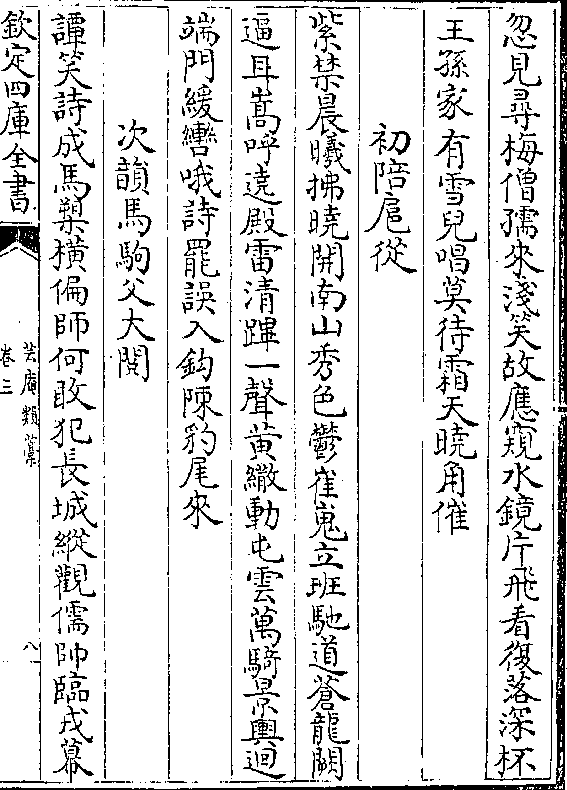 忽見尋梅僧孺來淺笑故應窺水鏡片飛看復落深杯
王孫家有雪兒唱莫待霜天曉角催
初陪扈從
紫禁晨曦拂曉開南山秀色鬱崔嵬立班馳道蒼龍闕
逼耳嵩呼遶殿雷清蹕一聲黄繖動屯雲萬騎景輿迴
端門緩轡哦詩罷誤入鈎陳豹尾來
次韻馬駒父大閲
譚笑詩成馬槊橫偏師何敢犯長城縱觀儒帥臨戎幕
欽定四庫全書
芸庵類藁
卷三
八